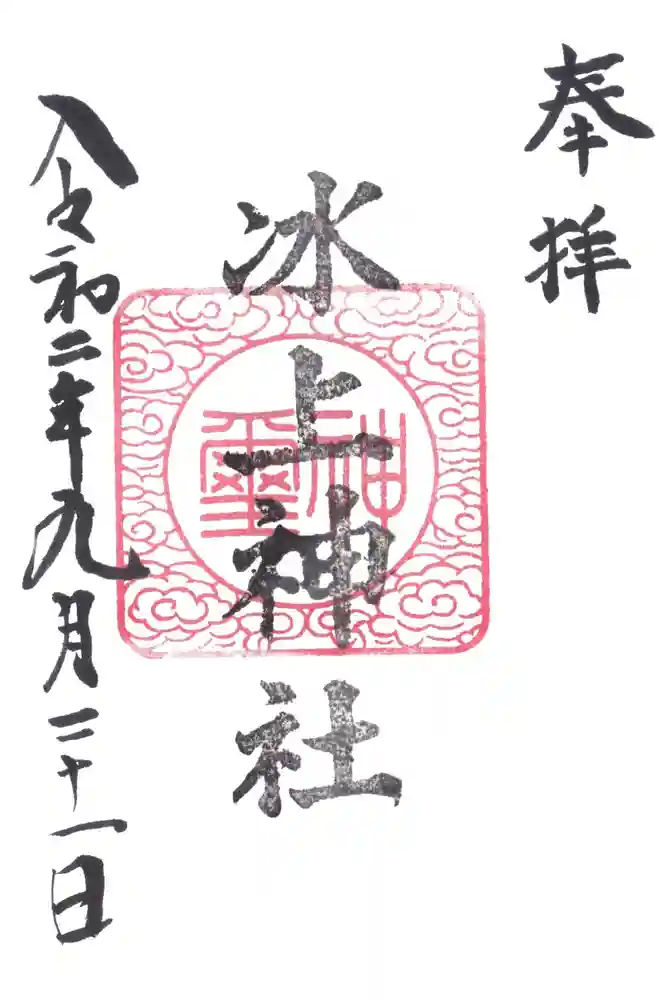 奉拝
氷上神社
神璽
令和二年九月二十一日